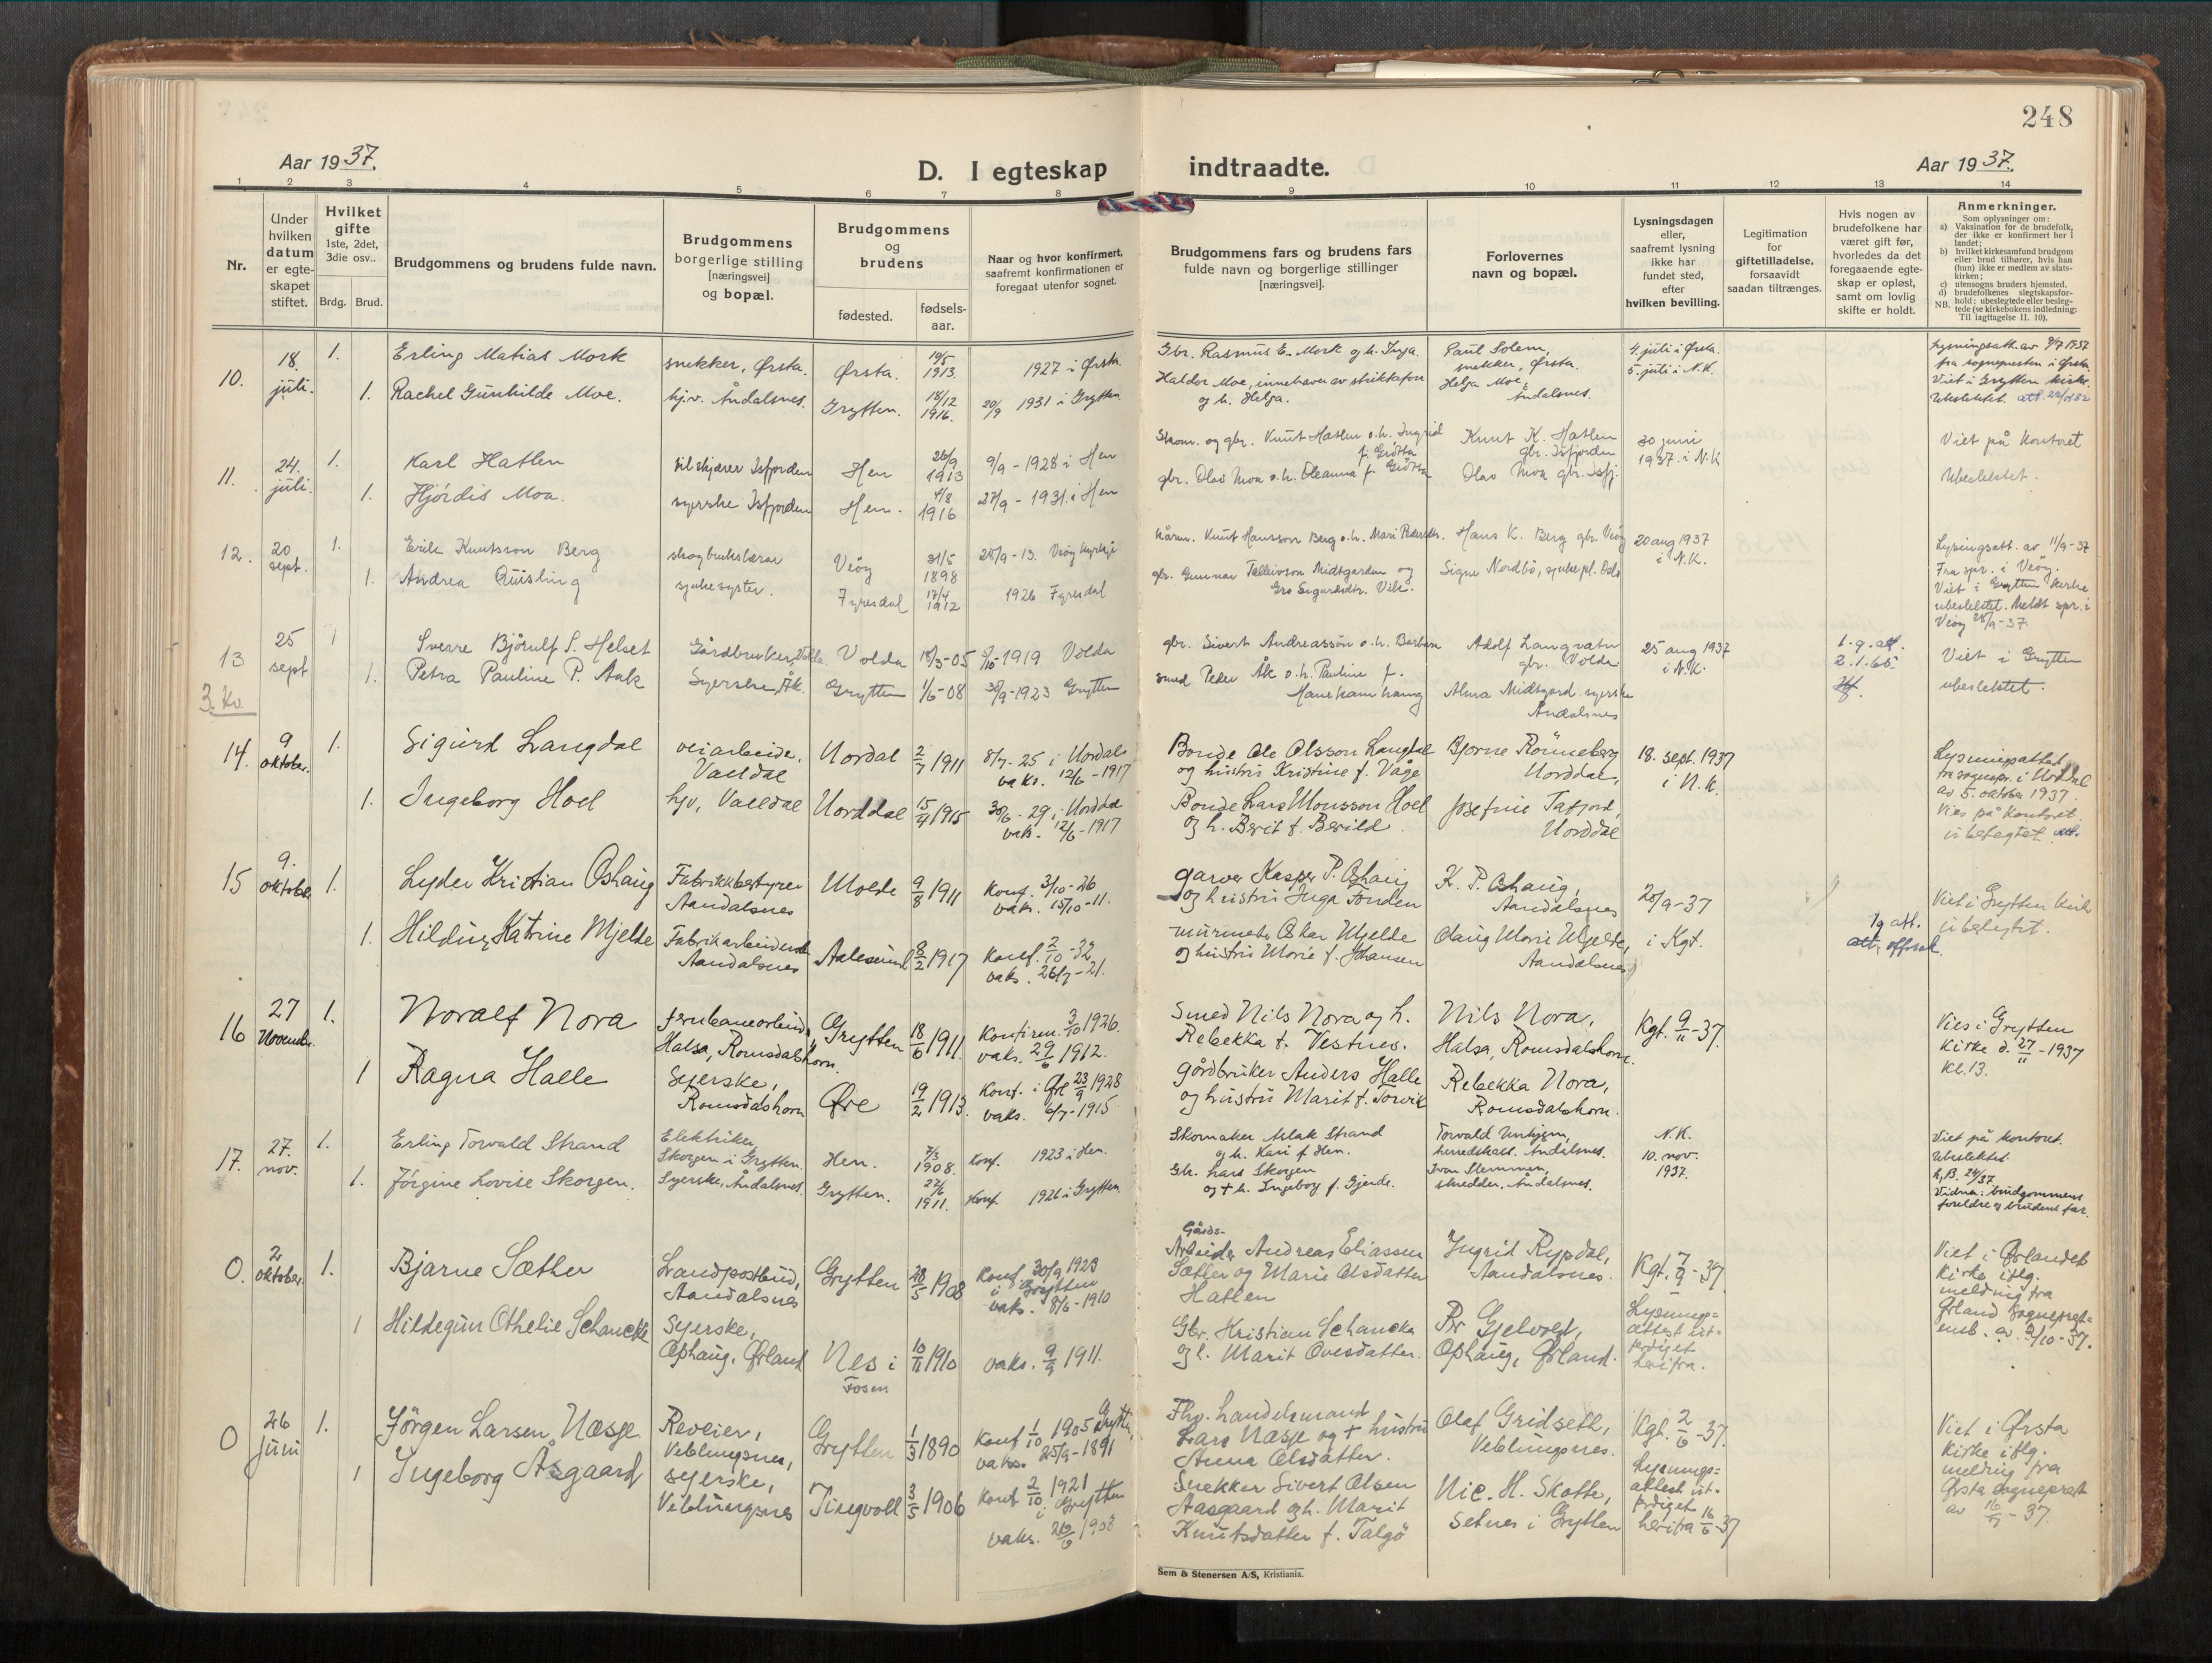 248
Aar 1937.
D. I egteskap indtraadte.
Aar 1937.
1 2 3 4 5 6 7 8 9 10 11 12 13 14
Nr.
Under
hvilken
datum
er egte-
skapet
stiftet.
Hvilket
gifte
1ste, 2det,
3die osv..
Brdg. Brud.
Brudgommens og brudens fulde navn.
Brudgommens
borgerlige stilling
[næringsvei]
og bopæl.
Brudgommens
og
brudens
fødested.
fødsels-
aar.
Naar og hvor konfirmert,
saafremt konfirmationen er
foregaat utenfor sognet.
Brudgommens fars og brudens fars
fulde navn og borgerlige stillinger
[næringsvei].
Forlovernes
navn og bopæl.
Lysningsdagen
eller,
saafremt lysning
ikke har
fundet sted,
efter
hvilken bevilling.
Legitimation
for
giftetilladelse,
forsaavidt
saadan tiltrænges.
Hvis nogen av
brudefolkene har
været gift før,
hvorledes da det
foregaaende egte-
skap er opløst,
samt om lovlig
skifte er holdt.
Anmerkninger.
Som oplysninger om:
a) Vaksination for de brudefolk,
der ikke er konfirmert her i
landet;
b) hvilket kirkesamfund brudgom
eller brud tilhører, hvis han
(hun) ikke er medlem av stats-
kirken;
c) utensogns bruders hjemsted.
d) brudefolkenes slegtskapsfor-
hold: ubeslegtede eller besleg-
tede (se kirkebokens indledning:
NB. Til iagttagelse II. 10).
10. 18. juli. 1.
Erling Matias Mork
snekker, Ørsta.
Ørsta. 14/5 1913.
1927 i Ørsta.
Gbr. Rasmus E. Mork og h. Inga.
Paul Solem,
snekker, Ørsta.
4. juli i Ørsta.
5. juli i N.K.
Lysningsatt. av 9/7 1937
fra sognepresten i Ørsta.
Viet i Grytten kirke.
Ubeslektet.
1. Rachel Gunhilde Moe.
hjv. Åndalsnes.
Grytten. 18/12 1916.
20/9 1931 i Grytten.
Haldor Moe, innehaver av strikkeforr
og h. Helga.
Helga Moe,
Åndalsnes.
11. 24. juli. 1.
Karl Hatlen
tilskjærer Isfjorden
Hen 26/9 1913
9/9 - 1928 i Hen
Skom. og gbr. Knut Hatlen o.h. Ingrid
Knut K. Hatlen
gbr. Isfjorden
30 juni
1937. i N.K
Viet på kontoret
Ubeslektet.
1. Hjördis Moa.
syerske Isfjorden
Hen. 4/8 1916
27/9 - 1931. i Hen
gbr. Olav Moa o.h. Oleanna f.
Olav Moa gbr. Isfj.
12. 20 sept. 1.
Erik Knutsson Berg
skogbrukslærar
Veöy 31/5 1898
28/9 - 13. Veöy kyrkje
Knut Hansson Berg o.h. Mari
Hans K. Berg gbr. Veöy
20 aug 1937
i N.K.
Lysingsatt. av 11/9-37
Fra spr. i Veöy.
Viet i Grytten kirke
ubeslektet. Meldt spr. i
Veöy 28/9-37.
1. Andrea Quisling
sjukesyster.
Fyresdal 17/4 1912
1926 Fyresdal
gbr. Gunnar Talleivson Midtgarden og
Gro Sigurdsdtr. Vik.
Signe Nordbö, sjukepl. Oslo
13 25 sept 1
Sverre Björulf S. Helset
Gårdbruker, Volda.
Volda 18/3-05
1919 Volda
gbr. Sivert Andreassön o.h. Barbara
Adolf Langvatn
gbr. Volda
25 aug 1937
i N.K.
1. g. att.
2.1.65.
Viet i Grytten
ubeslektet.
1. Petra Pauline P. Aak
Syerske, Åk.
Grytten 1/6-08
30/9-1923 Grytten
smed Peder Åk o.h. Pauline f.
Manehamhaug
Alma Midtgard syerske
Åndalsnes
3. kv.
14. 9 oktober. 1.
Sigurd Langdal
veiarbeide.
Valldal
Nordal 2/7 1911
8/7. 25 i Nordal
vaks. 12/6-1917
Bonde Ole Olsson Langdal
og hustru Kristine f. Våge
Bjarne Rönneberg
Norddal,
18. sept. 1937
i N.K.
Lysningsattest
fra sognepr. i Norddal
av 5. oktober 1937.
Vies på kontoret.
ubeslegtet
1. Ingeborg Hoel
hjv, Valldal
Norddal 15/4 1915
30/6 - 29 i Norddal
vaks. 12/6-1917
Bonde Lars Monsson Hoel
og h. Berit f. Berild.
Josefine Tafjord,
Norddal
15 9. oktober 1.
Lyder Kristian Oshaug
Fabrikkbestyrer
Aandalsnes
Molde 9/8 1911
Konf. 3/10-26
vaks. 15/10-11.
garver Kasper P. Oshaug
og hustru Inga Fonden
K. P. Oshaug,
Aandalsnes
20/9-37
i Kgt.
1g att.
Viet i Grytten kirke
ubeslegtet.
1. Hilding Katrine Mjelde
Fabrikarbeiderske
Aandalsnes
Aalesund 8/2 1917
Konf. 2/10-32
vaks. 26/7-21.
murmester Oskar Mjelde
og hustru Marie f. Johansen
Olaug Marie Mjelde,
Aandalsnes
16 27 Novemb. 1.
Noralf Nora
Jernbanearbeider,
Halsa, Romsdalshorn.
Grytten 18/6 1911.
Konfirm. 3/10 1926.
vaks. 29/6 1912.
Smed Nils Nora og h.
Rebekka f. Vestnes.
Nils Nora,
Halsa, Romsdalshorn.
Kgt. 9/11-37.
Vies i Grytten
Kirke d. 27/11-1937
kl. 13.
1 Ragna Halle
Syerske,
Romsdalshorn
Øre 19/2 1913.
Konf. i Øre 23/9 1928
vaks. 6/7-1915.
gårdbruker Anders Halle
og hustru Marit f. Torvik
Rebekka Nora,
Romsdalshorn.
17. 27. nov. 1.
Erling Torvald Strand
Elektriker,
Skorgen i Grytten.
Hen. 7/3 1908.
Konf. 1923 i Hen.
Skomaker Aslak Strand
og h. Kari f. Hen.
Torvald Unhjem,
herredskass. Åndalsnes.
N.K.
10. nov.
1937.
Viet på kontoret.
Ubeslektet.
Vidner: brudgommens
foreldre og brudens far.
1. Jörgine Lovise Skorgen.
Syerske, Åndalsnes.
Grytten. 22/6 1911.
Konf. 1926 i Grytten
Gbr. Lars Skorgen
og + h. Ingeborg f. Gjerde.
Iver Slemmen,
skredder, Åndalsnes.
0. 2 oktober. 1.
Bjarne Sæther
Landpostbud,
Aandalsnes
Grytten 28/5 1908
Konf. 30/9 1923
i Grytten
vaks. 8/6-1910
Gårds-
Arbeider Andreas Eliassen
Sætler og Marie Olsdatter
Hatlen
Ingrid Rypdal,
Aandalsnes.
Kgt. 7/9-37
Lysnings-
attest ut-
ferdiget
herifra.
Viet i Ørlandet
Kirke iflg.
melding fra
Ørland sogneprest-
emb. av. 2/10-37.
1 Hildegun Othelie Schancke
Syerske,
Ophaug, Ørland
Nes i
Fosen
10/11 1910
vaks. 9/9 1911.
Gbr. Kristian Schancke
og h. Marit Ovesdatter.
Pr Gjelvold,
Ophaug, Ørland.
0 26 juni 1.
Jörgen Larsen Næsje
Reveier,
Veblungsnes,
Grytten 1/3 1890
Konf 1/10 1905 Grytten,
vaks. 25/9-1891
Fhv. handelsmand
Lars Næsje og + hustru
Anna Olsdatter.
Olaf Gridseth,
Veblungsnes.
Kgt. 2/6-37.
Lysnings-
attest ut-
ferdiget
herifra 16/6-37
Viet i Ørsta
Kirke iflg.
melding fra
Ørsta sogneprest
av 16/7-37.
1 Ingeborg Åsgaard
syerske,
Veblungsnes
Tingvoll 3/5 1906
Konf 2/10 1921
i Grytten
vaks. 26/6 1908
Snekker Sivert Olsen
Aasgaard og h. Marit
Knutsdatter f. Talgö
Nic. H. Skotte,
Setnes i Grytten
Sem & Stenersen A/S, Kristiania.